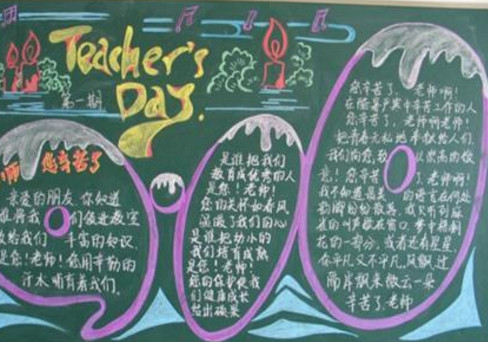 Teacher's
Day.
第一期
师 您辛苦了
亲爱的朋友,你知道
谁将我们领进教室
教给我们丰富的知识
是您!老师!您用辛勤的
汗水哺育着我们,
是谁把我们
教育成优秀的人
是您!老师!
您的关怀如春风
温暖了我们的心
是谁把幼小的
我们培育成熟
是您!老师!
您的保护使我
们健康成长
结出硕果
您辛苦了,老师啊!
在酷暑严寒中辛苦工作的人
您辛苦了,老师啊老师!
把青春无私地奉献给人们,
我们向您致以崇高的敬
意!您辛苦了,老师啊!
我不知道最美的语言在何处
花的一部分,或者还有星星,
在平凡又不平凡,风飘过
雨

飘来几朵云
辛苦了,老师